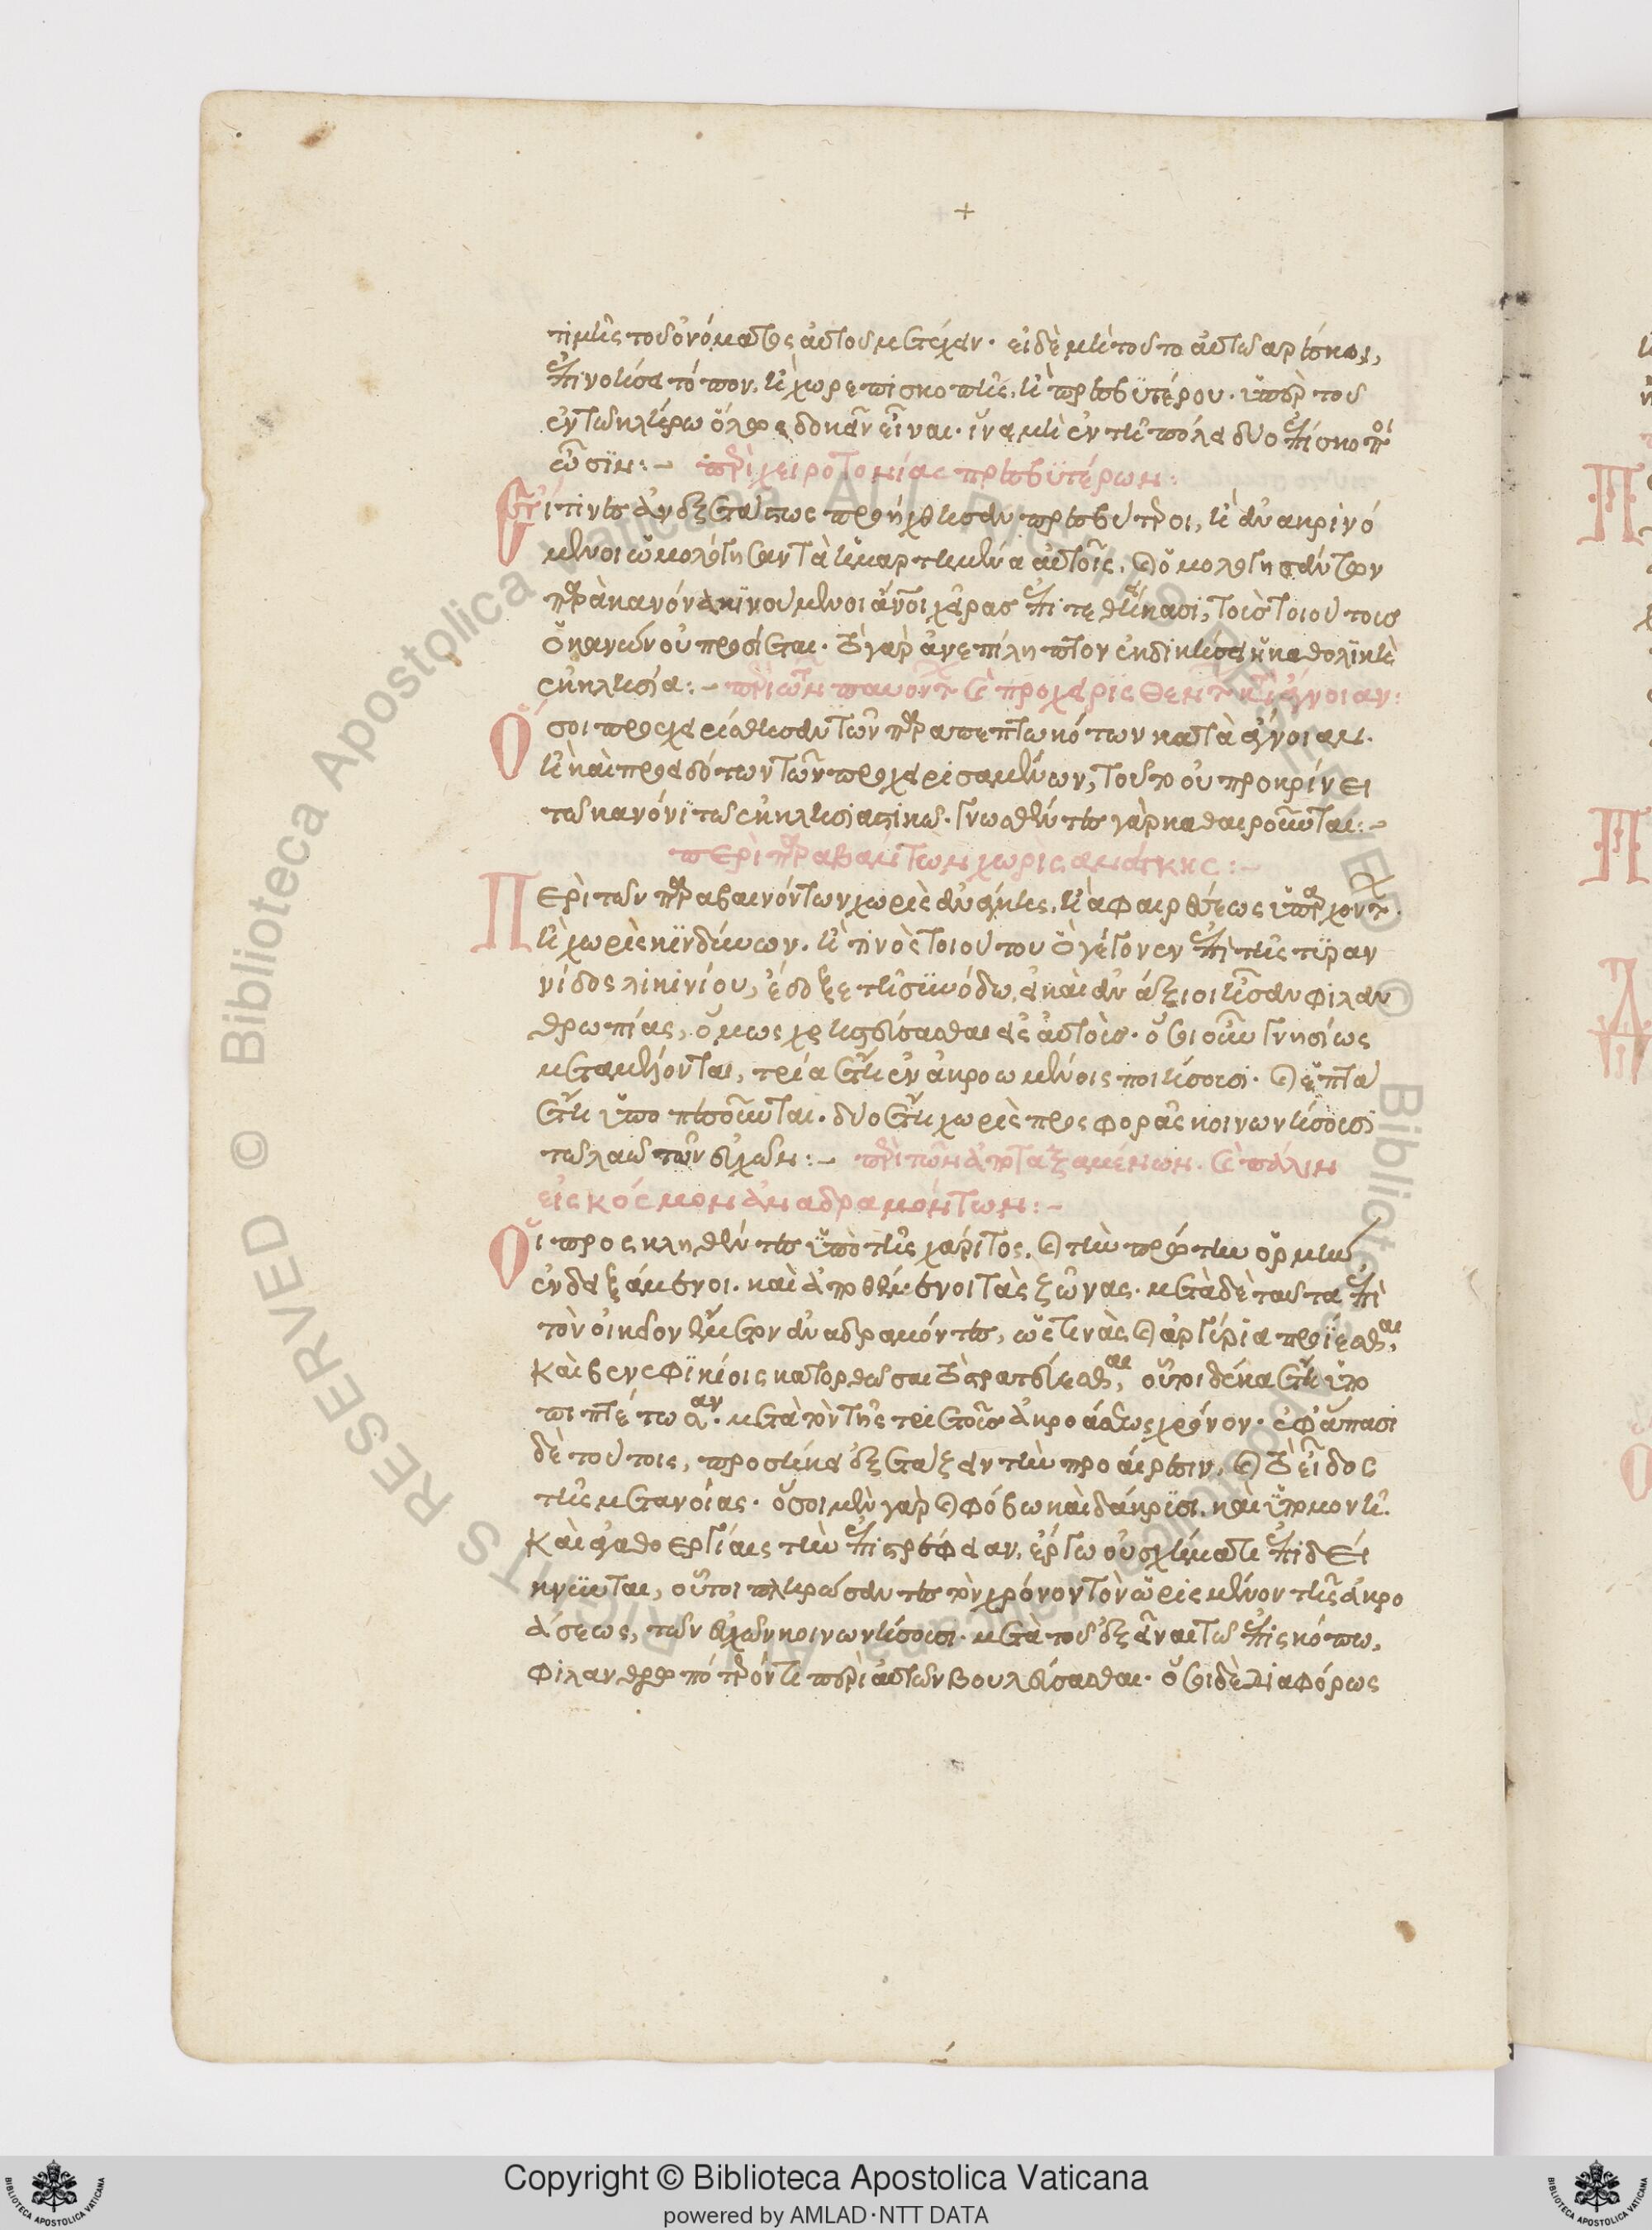 +
τιμῆς τοῦ ὀνόματος αὐτοῦ μετέχειν· εἰ δὲ μὴ τοῦτο αὐτῶ ἀρέσκοι,
ἐπινοήσει τόπον, ἢ χωρεπισκοπῆς, ἢ πρεσβυτέρου· ὑπὲρ τοῦ
ἐν τῶ κλήρω ὅλως δοκεῖν εἶναι· ἵνα μὴ ἐν τῆ πόλει δύο ἐπίσκοποι
ὦσιν:-  περὶ χειροτονίας πρεσβυτέρων:
Εἴ τινες ἀνεξετάστως προήχθησαν πρεσβύτεροι, ἢ ἀνακρινό
μενοι ὡμολόγησαν τὰ ἡμαρτημένα αὐτοῖς, καὶ ὁμολογησάντων
παρὰ κανόνα κινούμενοι ἄνοι χεῖρας ἐπιτεθείκασι, τοῖς τοιούτοις
ὁ κανὼν οὐ προσίεται· τὸ γὰρ ἀνεπίληπτον ἐκδικήσει ἡ καθολικὴ
ἐκκλησία:- περὶ τῶν παραπεσόντων καὶ προχειρισθέντων κατὰ ἄγνοιαν:
Ὅσοι προεχειρίσθησαν τῶν παραπεπτωκότων κατὰ ἄγνοιαν·
ἢ καὶ προειδότων τῶν προχειρισαμένων, τοῦτο οὐ προκρίνει
τῶ κανόνι τῶ ἐκκλησιαστικῶ· γνωσθέντες γὰρ καθαιροῦνται:-
περὶ παραβάντων χωρὶς ἀνάγκης:-
Περὶ τῶν παραβαινόντων χωρὶς ἀνάγκης, ἢ ἀφαιρέσεως ὑπαρχόντων
ἢ χωρὶς κινδύνων, ἤ τινος τοιούτου ὃ γέγονεν ἐπὶ τῆς τυραν
νίδος λικινίου, ἔδοξε τῆ συνόδω, εἰ καὶ ἀνάξιοι ἦσαν φιλαν
θρωπίας, ὅμως χρηστεύσασθαι εἰς αὐτούς· ὅσοι οὖν γνησίως
μεταμέλονται, τρία ἔτη ἐν ἀκροωμένοις ποιήσουσι· καὶ ἑπτὰ
ἔτη ὑποπεσοῦνται· δύο ἔτη χωρὶς προσφορᾶς κοινωνήσουσι
τῶ λαῶ τῶν εὐχῶν:-  περὶ τῶν ἀποταξαμένων· καὶ πάλιν
εἰς κόσμον ἀναδραμόντων:-
Οἱ προσκληθέντες ὑπὸ τῆς χάριτος, καὶ τὴν πρώτην ὁρμὴν
ἐνδειξάμενοι· καὶ ἀποθέμενοι τὰς ζώνας· μετὰ δὲ ταῦτα ἐπὶ
τὸν οἰκεῖον ἔμετον ἀναδραμόντες, ὥς τινὰς καὶ ἀργύρια προΐεσθαι,
καὶ βενεφικίοις κατορθῶσαι τὸ στρατεύεσθαι, οὗτοι δέκα ἔτη ὑπο
πιπτέτωσαν· μετὰ τὸν τῆς τριετοῦς ἀκροάσεως χρόνον· ἐφ' ἅπασι
δὲ τούτοις, προσήκει ἐξετάζειν τὴν προαίρεσιν, καὶ τὸ εἶδος
τῆς μετανοίας· ὅσοι μὲν γὰρ καὶ φόβω καὶ δάκρυσι, καὶ ὑπομονῆ.
καὶ ἀγαθοεργίαις τὴν ἐπιστροφὴν, ἔργω οὐ σχήματι ἐπιδεί
κνυνται, οὗτοι πληρώσαντες τὸν χρόνον τὸν ὡρισμένον τῆς ἀκρο
άσεως, τῶν εὐχῶν κοινωνήσουσι· μετὰ τοῦ ἐξεῖναι τῶ ἐπισκόπω,
φιλανθρωπότερόν τι περὶ αὐτῶν βουλεύσασθαι· ὅσοι δὲ ἀδιαφόρως
Copyright © Biblioteca Apostolica Vaticana
powered by AMLAD·NTT DATA